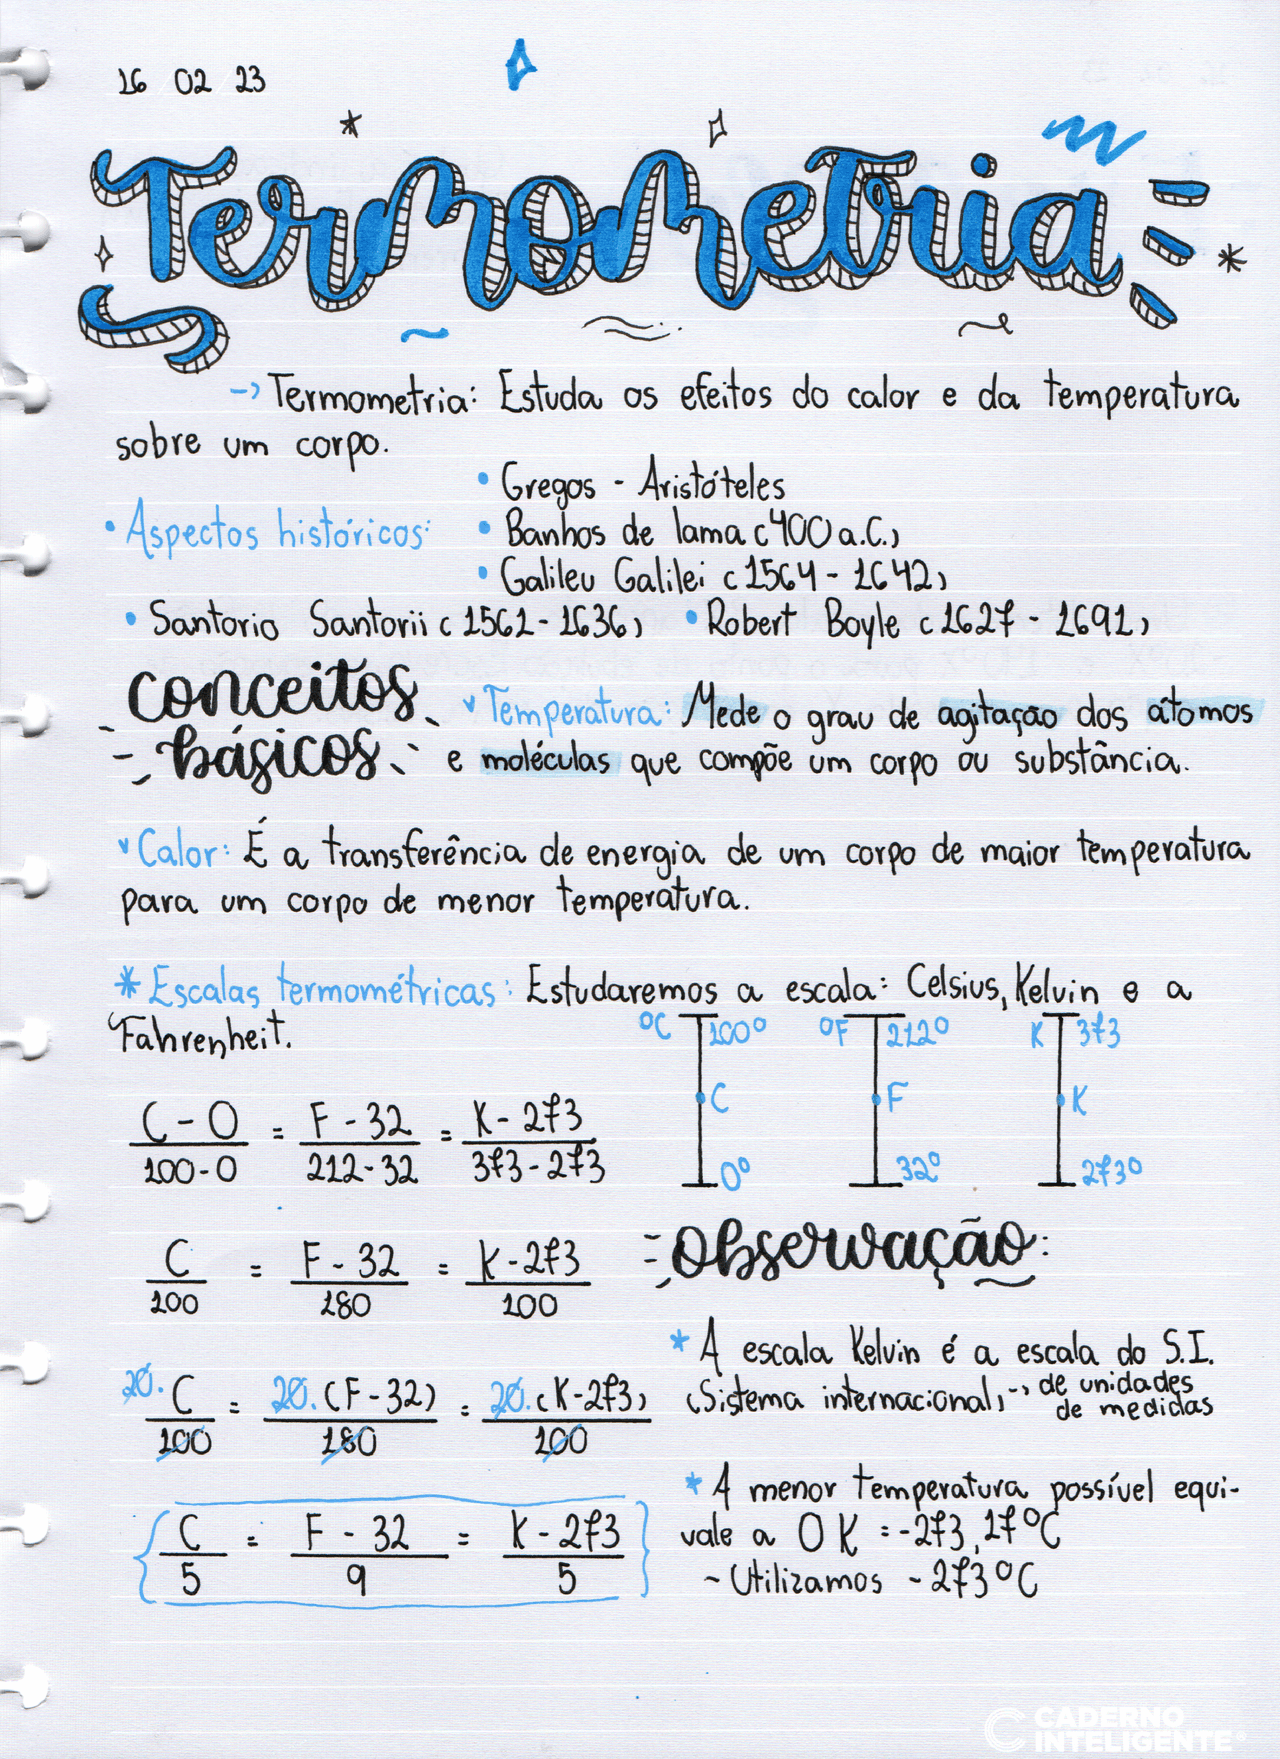 16 02 23
Termometria
-> Termometria: Estuda os efeitos do calor e da temperatura
sobre um corpo.
• Aspectos históricos:
• Gregos - Aristóteles
• Banhos de lama (400 a.C.)
• Galileu Galilei (1564 - 1642)
• Santorio Santorii (1561 - 1636) • Robert Boyle (1627 - 1691)
conceitos
básicos
v Temperatura: Mede o grau de agitação dos átomos
e moléculas que compõe um corpo ou substância.
v Calor: É a transferência de energia de um corpo de maior temperatura
para um corpo de menor temperatura.
* Escalas termométricas: Estudaremos a escala: Celsius, Kelvin e a
Fahrenheit.
°C 100° °F 212° K 373
C F K
0° 32° 273°
C - 0 = F - 32 = K - 273
100 - 0 212 - 32 373 - 273
C = F - 32 = K - 273
100 180 100
20. C = 20. (F - 32) = 20. (K - 273)
100 180 100
C = F - 32 = K - 273
5 9 5
observação:
* A escala Kelvin é a escala do S.I.
(Sistema internacional) -> de unidades
de medidas
* A menor temperatura possível equi-
vale a 0 K = -273,17°C
~ Utilizamos - 273°C
CADERNO
INTELIGENTE®